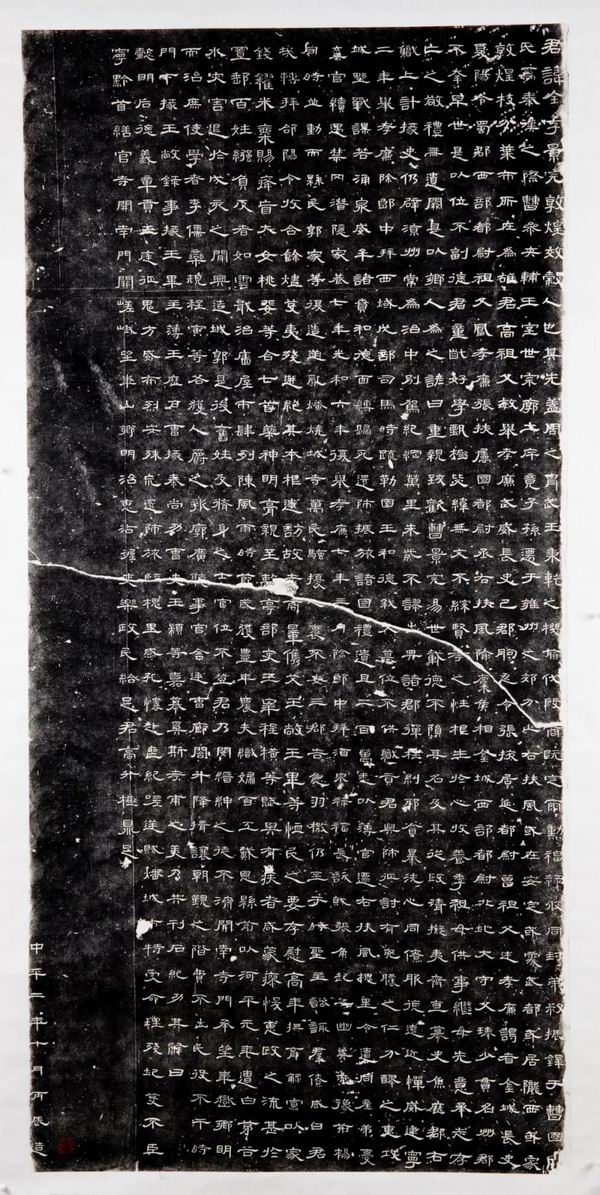 君諱全字景完敦煌效穀人也其先蓋周之胄武王秉乾之機翦伐殷商既定爾勳福祿攸同封弟叔振鐸于曹國因
氏焉秦漢之際曹參夾輔王室世宗廓土斥竟子孫遷于雍州之郊分止右扶風或在安定或處武都或居隴西或家
敦煌枝分葉布所在為雄君高祖父敏舉孝廉武威長史巴郡朐忍令張掖居延都尉曾祖父述孝廉謁者金城長史
夏陽令蜀郡西部都尉祖父鳳孝廉張掖屬國都尉丞右扶風隃麋侯相金城西部都尉北地大守父琫少貫名州郡
不幸早世是以位不副德君童齔好學甄極毖緯無文不綜賢孝之性根生於心收養季祖母供事繼母先意承志存
亡之敬禮無遺闕是以鄉人為之諺曰重親致歡曹景完易世載德不隕其名及其從政清擬夷齊直慕史魚歷郡右
職上計掾史仍辟涼州常為治中別駕紀綱萬里朱紫不謬出典諸郡彈枉糾邪貪暴洗心同僚服德遠近憚威建寧
二年舉孝廉除郎中拜西域戊部司馬時疏勒國王和德弒父篡位不供職貢君興師征討有吮膿之仁分醪之惠攻
城野戰謀若涌泉威牟諸賁和德面縛歸死還師振旅諸國禮遺且二百萬悉以薄官遷右扶風槐里令遭同產弟憂
棄官續遇禁冈潛隱家巷七年光和六年復舉孝廉七年三月除郎中拜酒泉祿福長訞賊張角起兵幽冀兗豫荊楊
同時並動而縣民郭家等復造逆亂燔燒城寺萬民騷擾人裹不安三郡告急羽檄仍至于時聖主諮諏群僚咸曰君
哉轉拜郃陽令收合餘燼芟夷殘迸絕其本根遂訪故老商量儁艾王敞王畢等恤民之要存慰高年撫育鰥寡以家
錢糴米粟賜癃盲大女桃婓等合七首藥神明膏親至離亭部吏王宰程橫等賦與有疾者咸蒙瘳悛惠政之流甚於
置郵百姓繦負反者如雲戢治廧屋市肆列陳風雨時節歲獲豐年農夫織婦百工戴恩縣前以河平元年遭白茅谷
水災害退於戊亥之間興造城郭是後舊姓及脩身之士官位不登君乃閔縉紳之徒不濟開南寺門承望華嶽鄉明
而治庶使學者李儒欒規程寅等各獲人爵之報廓廣聽事官舍廷曹廊閤升降揖讓朝覲之階費不出民役不干時
門下掾王敞錄事掾王畢主薄王歷戶曹掾秦尚功曹史王顓等嘉慕奚斯考甫之美乃共刊石紀功其辭曰
懿明后德義章貢王庭征鬼方威布烈安殊巟還師旅臨槐里感孔懷赴喪紀嗟逆賊燔城市特受命理殘圯芟不臣
寧黔首繕官寺開南門闕嵯峨望華山鄉明治惠沾渥吏樂政民給足君高升極鼎足
中平二年十月丙辰造